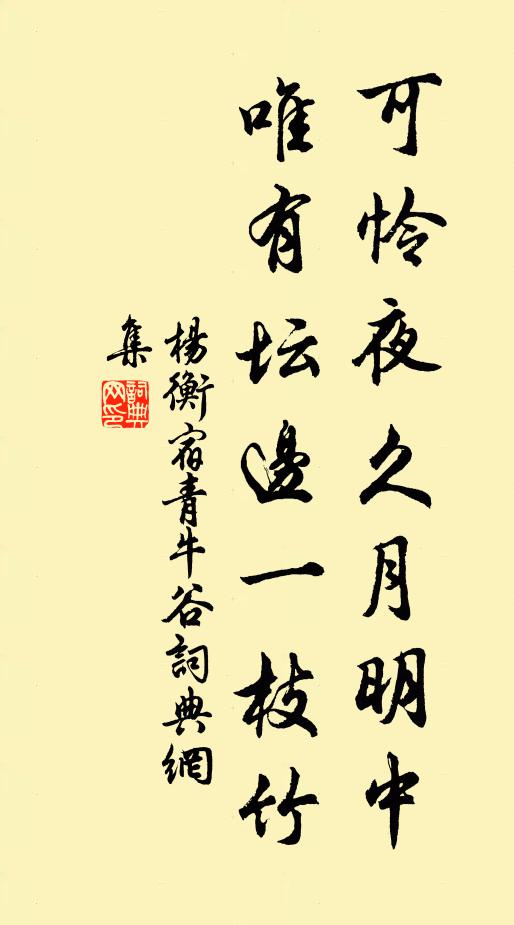 可怜夜久月明中
唯有坛邊一枝竹
楊衡宿青牛谷詞典網
集
詞典
网印